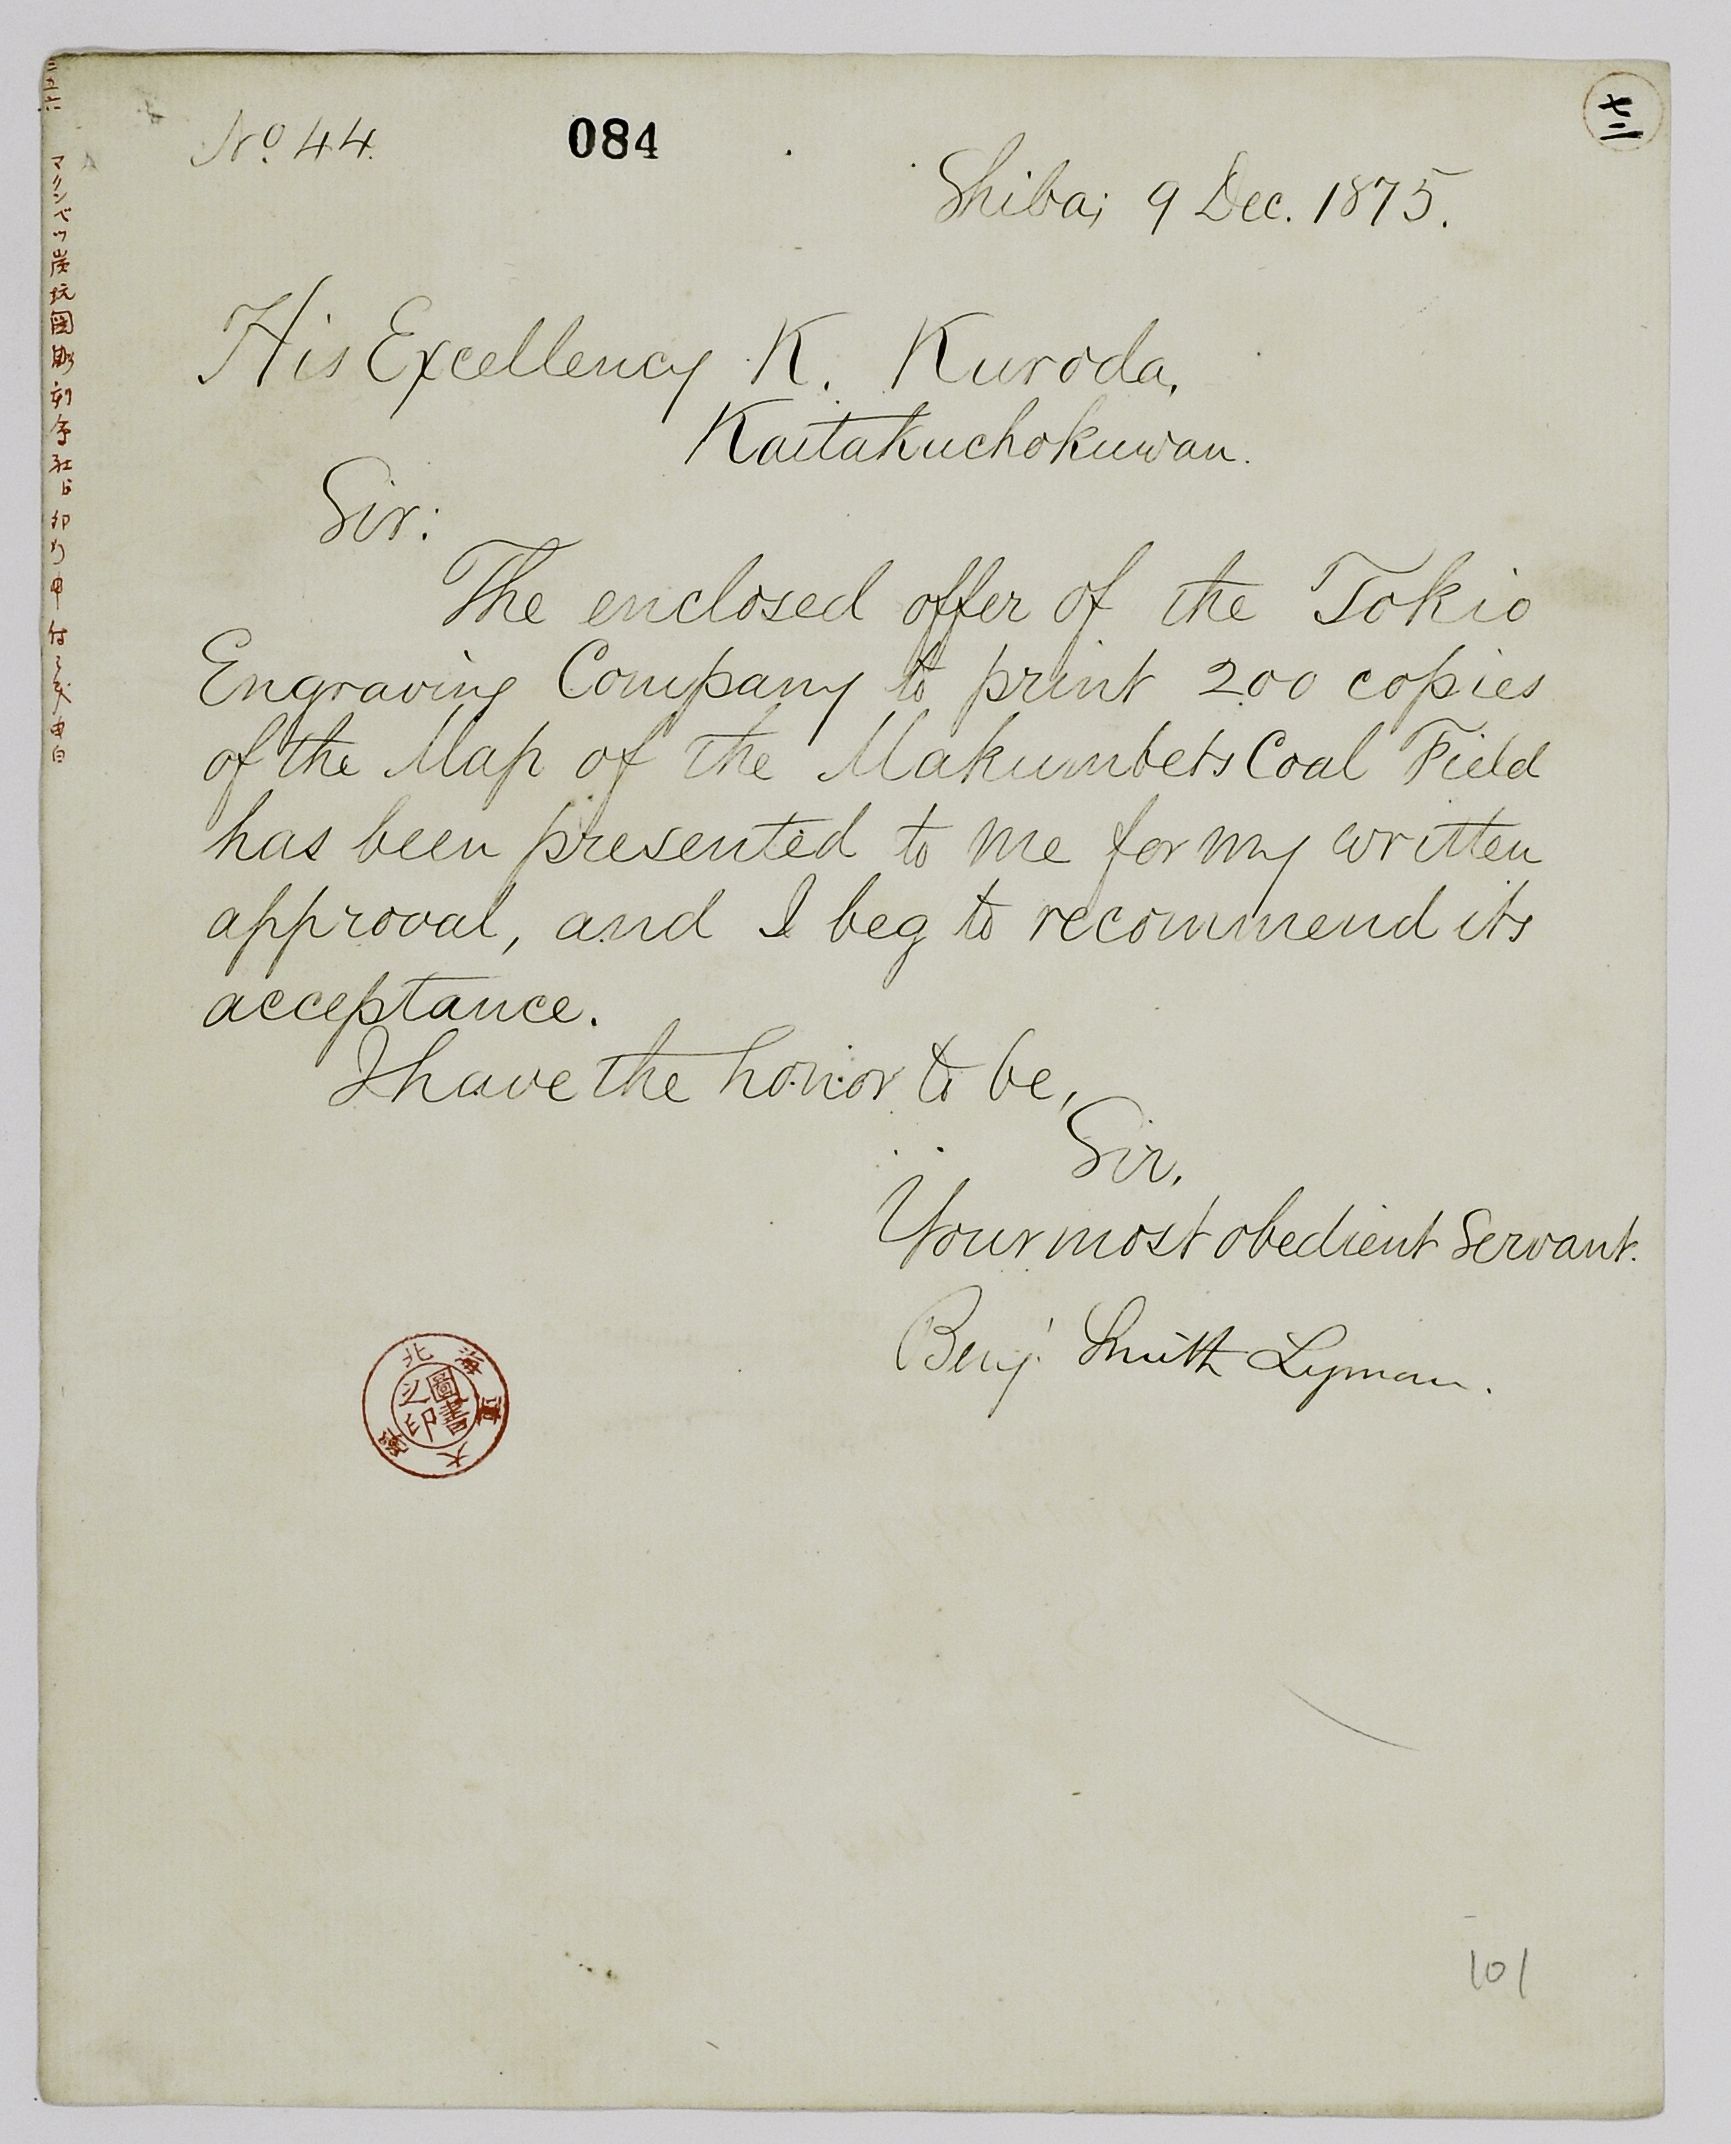 No. 44.
084
七二
Shiba; 9 Dec. 1875.
His Excellency K. Kuroda,
Kaitakuchokuwan.
Sir:
The enclosed offer of the Tokio
Engraving Company to print 200 copies
of the Map of the Makumbets Coal Field
has been presented to me for my written
approval, and I beg to recommend its
acceptance.
I have the honor to be,
Sir,
Your most obedient servant.
Benj. Smith Lyman.
北海道大學
圖書之印
101